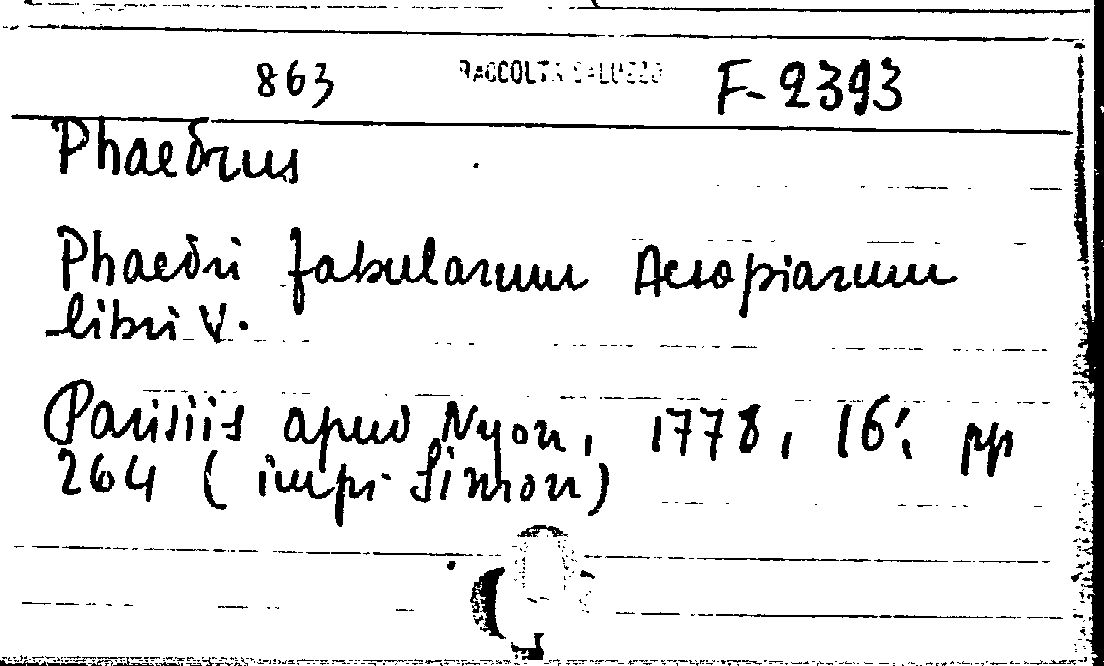 863 RACCOLTA SALUZZO F-2393
Phaedrus
Phaedri fabularum Aesopiarum
libri V.
Parisiis apud Nyon, 1778, 16: pp
264 (impr Simon)